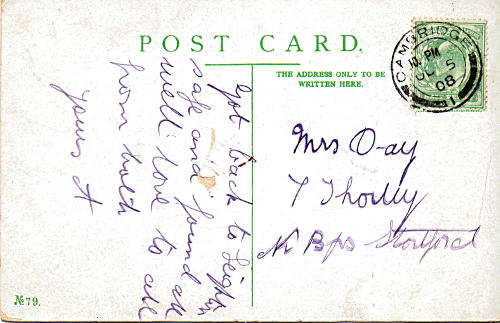 POST CARD.
THE ADDRESS ONLY TO BE
WRITTEN HERE.
CAMBRIDGE
10. PM
JU 5
08
Got back to Leighton
safe and found all
well love to all
from hold
yours A
Mrs Day
Thorley
Nr Bps Stortford
№ 79.